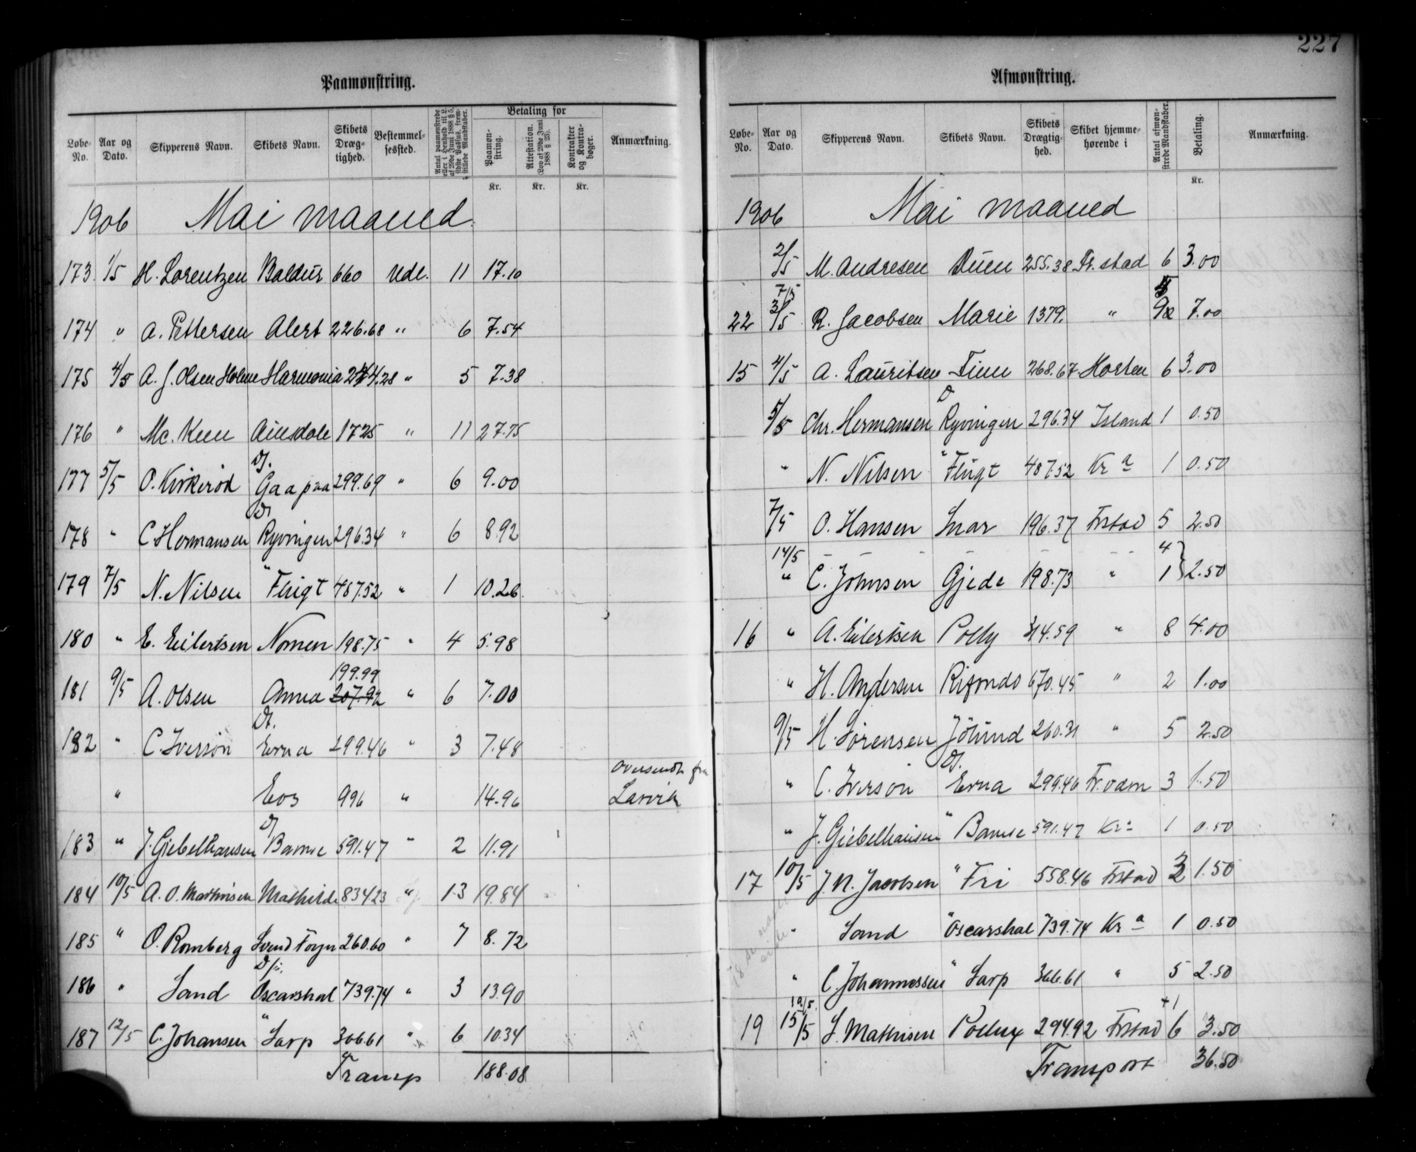 227
Paamønstring.
Løbe-No. Aar og Dato. Skipperens Navn. Skibets Navn. Skibets Dræg-tighed. Bestemmel-sessted. Betaling for Paamøn-string. Attestation. Kontrakter og Kontra-bøger. Anmærkning.
Kr. Kr. Kr.
1906 Mai maaned
173 1/5 H. Lorentzen Baldur 660 Udl. 11 17.10
174 " A. Pettersen Alert 226.68 " 6 7.54
175 4/5 A. J. Olsen Holme Harmonia 244.28 " 5 7.38
176 " Mc. Keen Ainsdale 1725 " 11 27.75
177 5/5 O. Kirkerød Dj. Gaapaa 299.69 " 6 9.00
178 " C Hermansen D Ryvingen 296.34 " 6 8.92
179 7/5 N. Nilsen " Flugt 487.52 " 1 10.26
180 " E. Eilertsen Nornen 198.75 " 4 5.98
181 9/5 A. Olsen Anna 207.92 199.99 " 6 7.00
182 " C Iverson D. Erna 299.46 " 3 7.48
" Eos 996 " 14.96 oversendt fra Larvik
183 " J. Giebelhausen D Bamse 591.47 " 2 11.91
184 10/5 A. O. Mathisen Mathilde 834.23 " 13 19.84
185 " O. Romberg Svend Foyn 260.60 " 7 8.72
186 " Sand D/s. Oscarshal 739.74 " 3 13.90
187 12/5 C. Johansen " Sarp 366.61 " 6 10.34
Transp 188.08
Afmønstring.
Løbe-No. Aar og Dato. Skipperens Navn. Skibets Navn. Skibets Drægtig-hed. Skibet hjemme-hørende i Antal afmøn-strede Mandskaber. Betaling. Anmærkning.
Kr.
1906 Mai maaned
2/5 M. Andresen Duen 255.38 Fr. stad 6 3.00
7/5
22 3/5 R. Jacobsen Marie 1379 " 9 7.00
15 4/5 A. Lauritsen Finn 268.67 Horten 6 3.00
5/5 Chr. Hermansen D Ryvingen 296.34 Island 1 0.50
" N. Nilsen " Flugt 487.52 Kr a 1 0.50
7/5 O. Hansen Snar 196.37 Frstad 5 2.50
14/5 4
" C. Johnsen Gjede 198.73 " 1 } 2.50
16 " A. Eilertsen Polly 314.59 " 8 4.00
" H. Andersen Rifondo 670.45 " 2 1.00
9/5 H. Sørensen Jølund 260.31 " 5 2.50
" C. Iverson Dj. Erna 299.46 Fr.værn 3 1.50
" J. Giebelhausen " Bamse 591.47 Kr a 1 0.50
17 10/5 J. N. Jacobsen " Fri 558.46 Frstad 3 1.50
" Sand " Oscarshal 739.74 Kr a 1 0.50
" C. Johannessen " Sarp 366.61 " 5 2.50
12/5. +1
19 15/5 S. Mathisen Pollux 294.92 Frstad 6 3.50
Transport 36.50